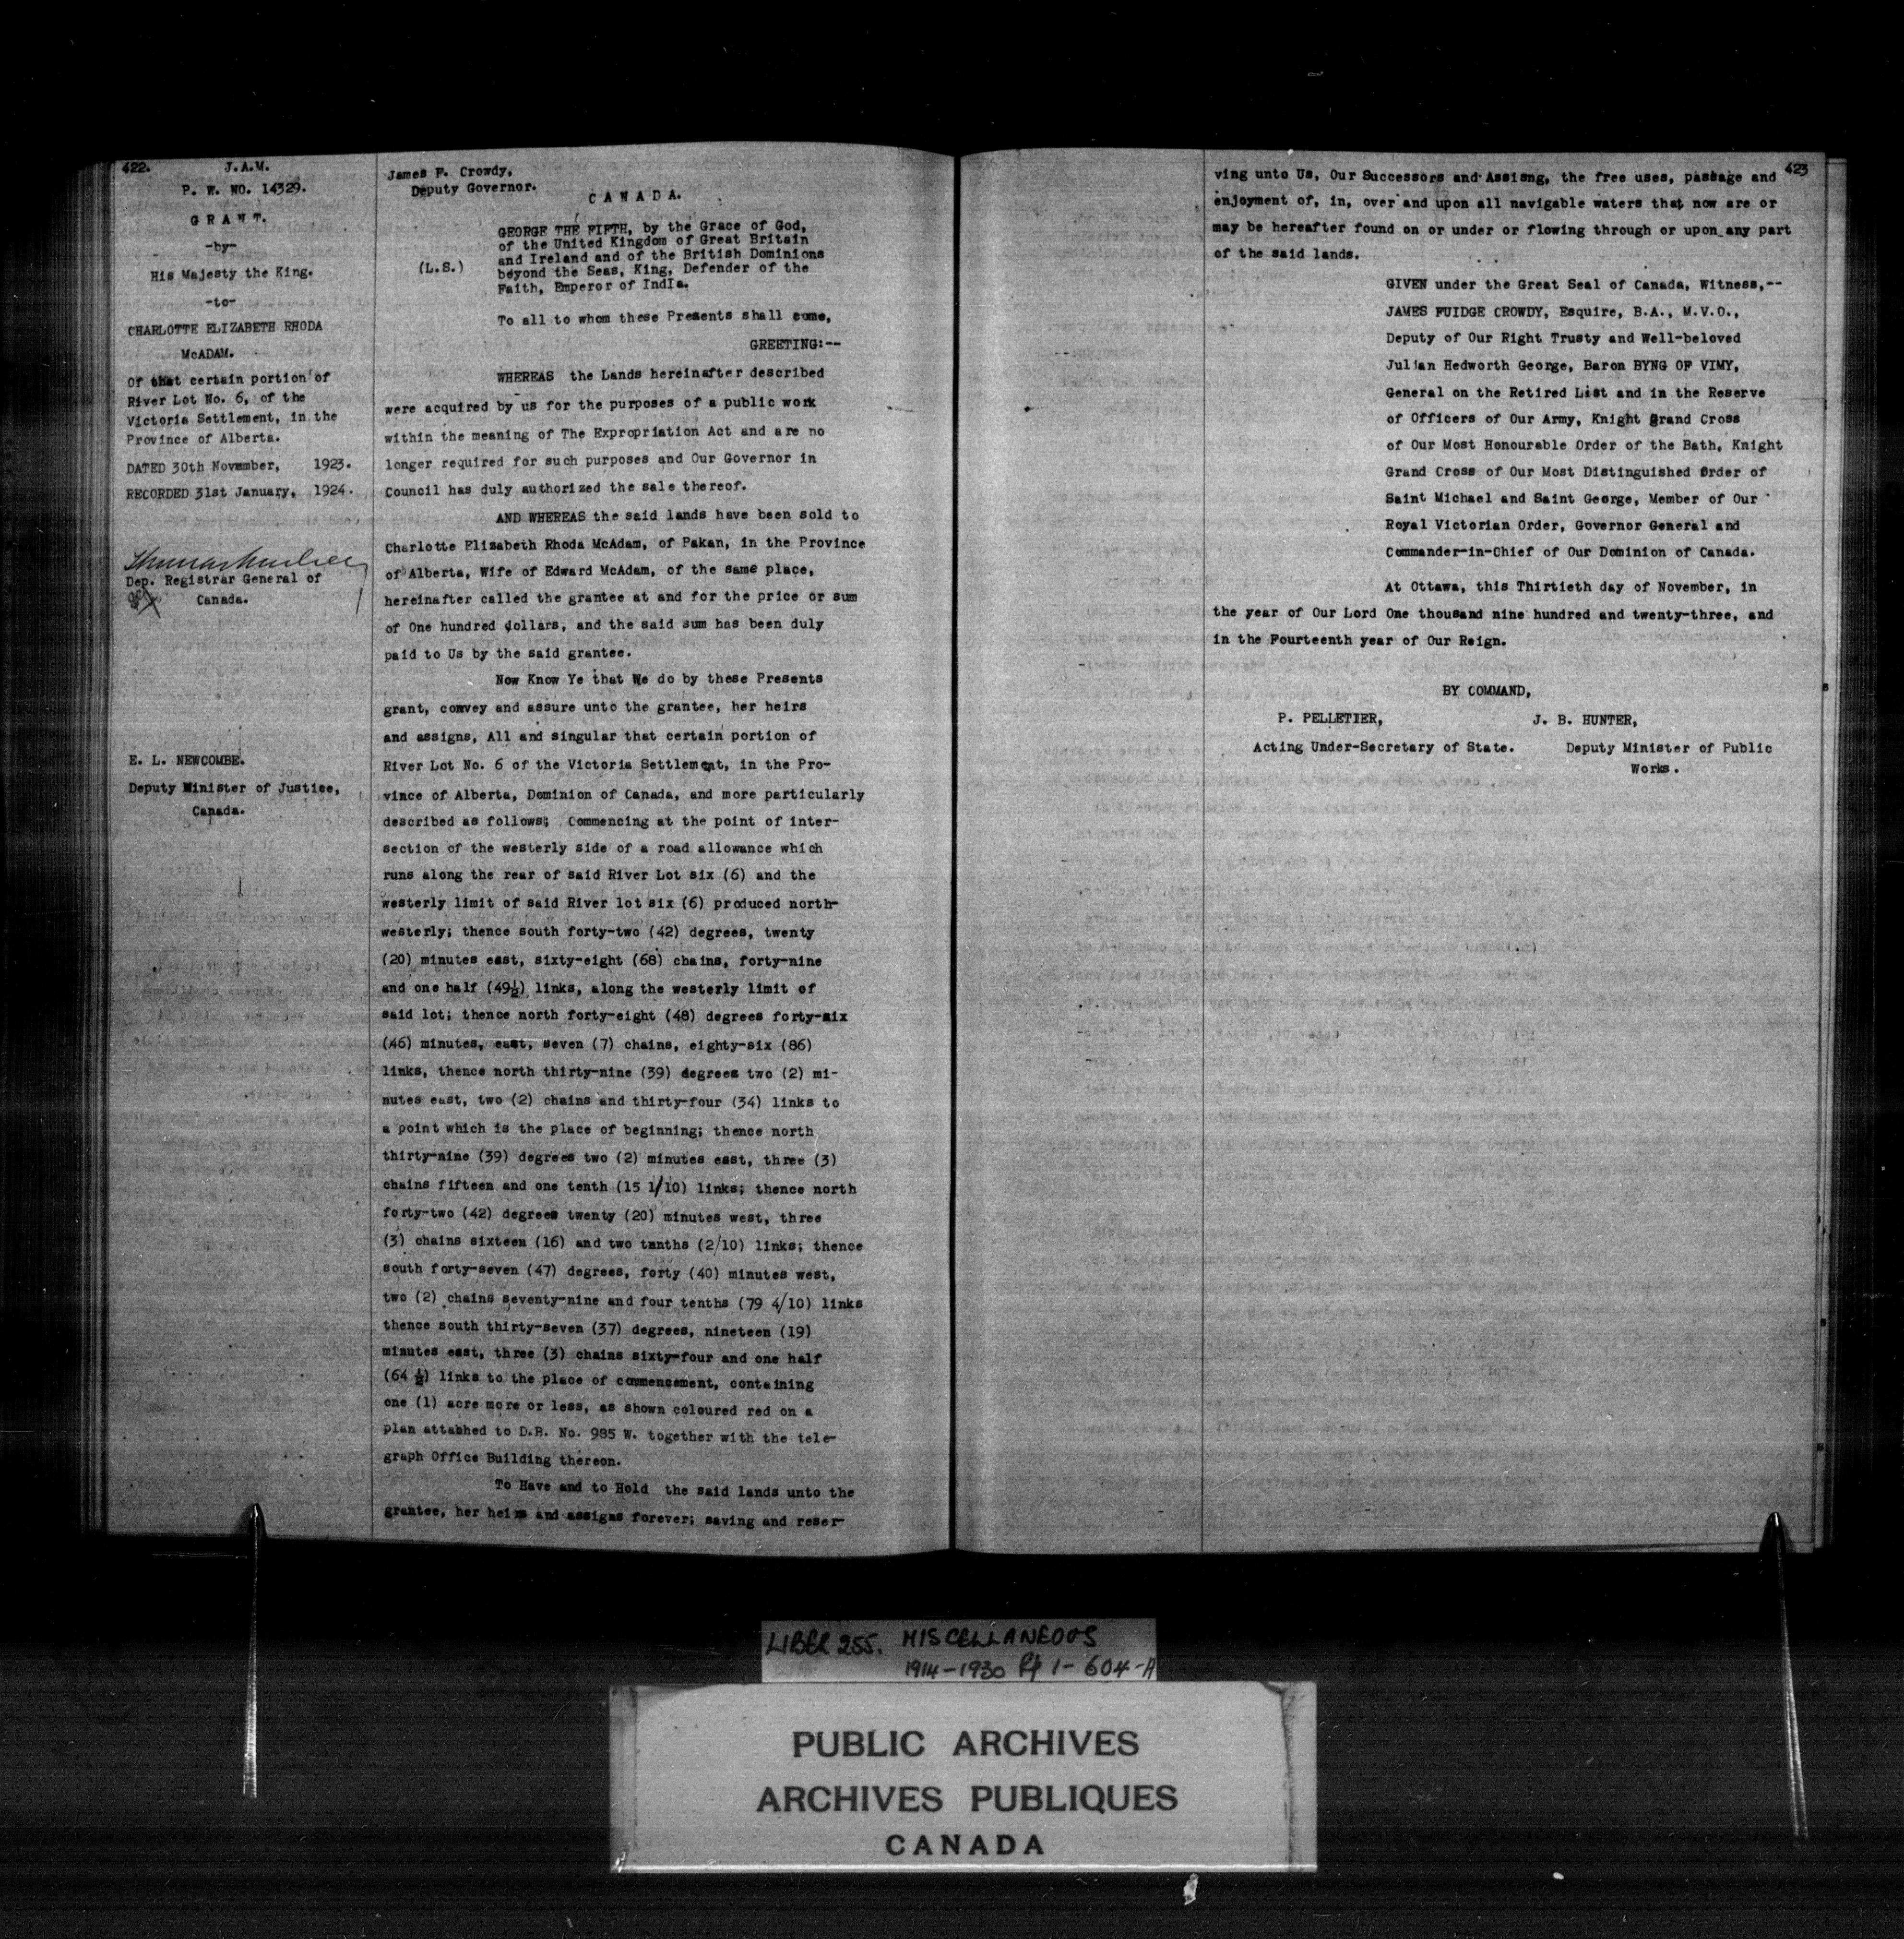 422.
J.A.M.
P. W. NO. 14329.
G R A N T.
-by-
His Majesty the King.
-to-
CHARLOTTE ELIZABETH RHODA
McADAM.
Of that certain portion of
River Lot No. 6, of the
Victoria Settlement, in the
Province of Alberta.
DATED 30th November, 1923.
RECORDED 31st January, 1924.
Dep. Registrar General of
Canada.
E. L. NEWCOMBE.
Deputy Minister of Justice,
Canada.
James F. Crowdy,
Deputy Governor.
C A N A D A.
GEORGE THE FIFTH, by the Grace of God,
of the United Kingdom of Great Britain
and Ireland and of the British Dominions
(L.S.) beyond the Seas, King, Defender of the
Faith, Emperor of IndIa.
To all to whom these Presents shall come,
GREETING:--
WHEREAS the Lands hereinafter described
were acquired by us for the purposes of a public work
within the meaning of The Expropriation Act and are no
longer required for such purposes and Our Governor in
Council has duly authorized the sale thereof.
AND WHEREAS the said lands have been sold to
Charlotte Elizabeth Rhoda McAdam, of Pakan, in the Province
of Alberta, Wife of Edward McAdam, of the same place,
hereinafter called the grantee at and for the price or sum
of One hundred dollars, and the said sum has been duly
paid to Us by the said grantee.
Now Know Ye that We do by these Presents
grant, convey and assure unto the grantee, her heirs
and assigns, All and singular that certain portion of
River Lot No. 6 of the Victoria Settlement, in the Pro-
vince of Alberta, Dominion of Canada, and more particularly
described as follows; Commencing at the point of inter-
section of the westerly side of a road allowance which
runs along the rear of said River Lot six (6) and the
westerly limit of said River lot six (6) produced north-
westerly; thence south forty-two (42) degrees, twenty
(20) minutes east, sixty-eight (68) chains, forty-nine
and one half (49½) links, along the westerly limit of
said lot; thence north forty-eight (48) degrees forty-six
(46) minutes, east, seven (7) chains, eighty-six (86)
links, thence north thirty-nine (39) degrees two (2) mi-
nutes east, two (2) chains and thirty-four (34) links to
a point which is the place of beginning; thence north
thirty-nine (39) degrees two (2) minutes east, three (3)
chains fifteen and one tenth (15 1/10) links; thence north
forty-two (42) degrees twenty (20) minutes west, three
(3) chains sixteen (16) and two tenths (2/10) links; thence
south forty-seven (47) degrees, forty (40) minutes west,
two (2) chains seventy-nine and four tenths (79 4/10) links
thence south thirty-seven (37) degrees, nineteen (19)
minutes east, three (3) chains sixty-four and one half
(64 ½) links to the place of commencement, containing
one (1) acre more or less, as shown coloured red on a
plan attabhed to D.B. No. 985 W. together with the tele-
graph Office Building thereon.
To Have and to Hold the said lands unto the
grantee, her heirs and assigns forever; saving and reser-
423
ving unto Us, Our Successors and Assisng, the free uses, passage and
enjoyment of, in, over and upon all navigable waters that now are or
may be hereafter found on or under or flowing through or upon any part
of the said lands.
GIVEN under the Great Seal of Canada, Witness,--
JAMES FUIDGE CROWDY, Esquire, B.A., M.V.O.,
Deputy of Our Right Trusty and Well-beloved
Julian Hedworth George, Baron BYNG OF VIMY,
General on the Retired List and in the Reserve
of Officers of Our Army, Knight Grand Cross
of Our Most Honourable Order of the Bath, Knight
Grand Cross of Our Most Distinguished Order of
Saint Michael and Saint George, Member of Our
Royal Victorian Order, Governor General and
Commander-in-Chief of Our Dominion of Canada.
At Ottawa, this Thirtieth day of November, in
the year of Our Lord One thousand nine hundred and twenty-three, and
in the Fourteenth year of Our Reign.
BY COMMAND,
P. PELLETIER, J. B. HUNTER,
Acting Under-Secretary of State. Deputy Minister of Public
Works.
LIBER 255. MISCELLANEOUS
1914-1930 Pp 1-604-A
PUBLIC ARCHIVES
ARCHIVES PUBLIQUES
CANADA